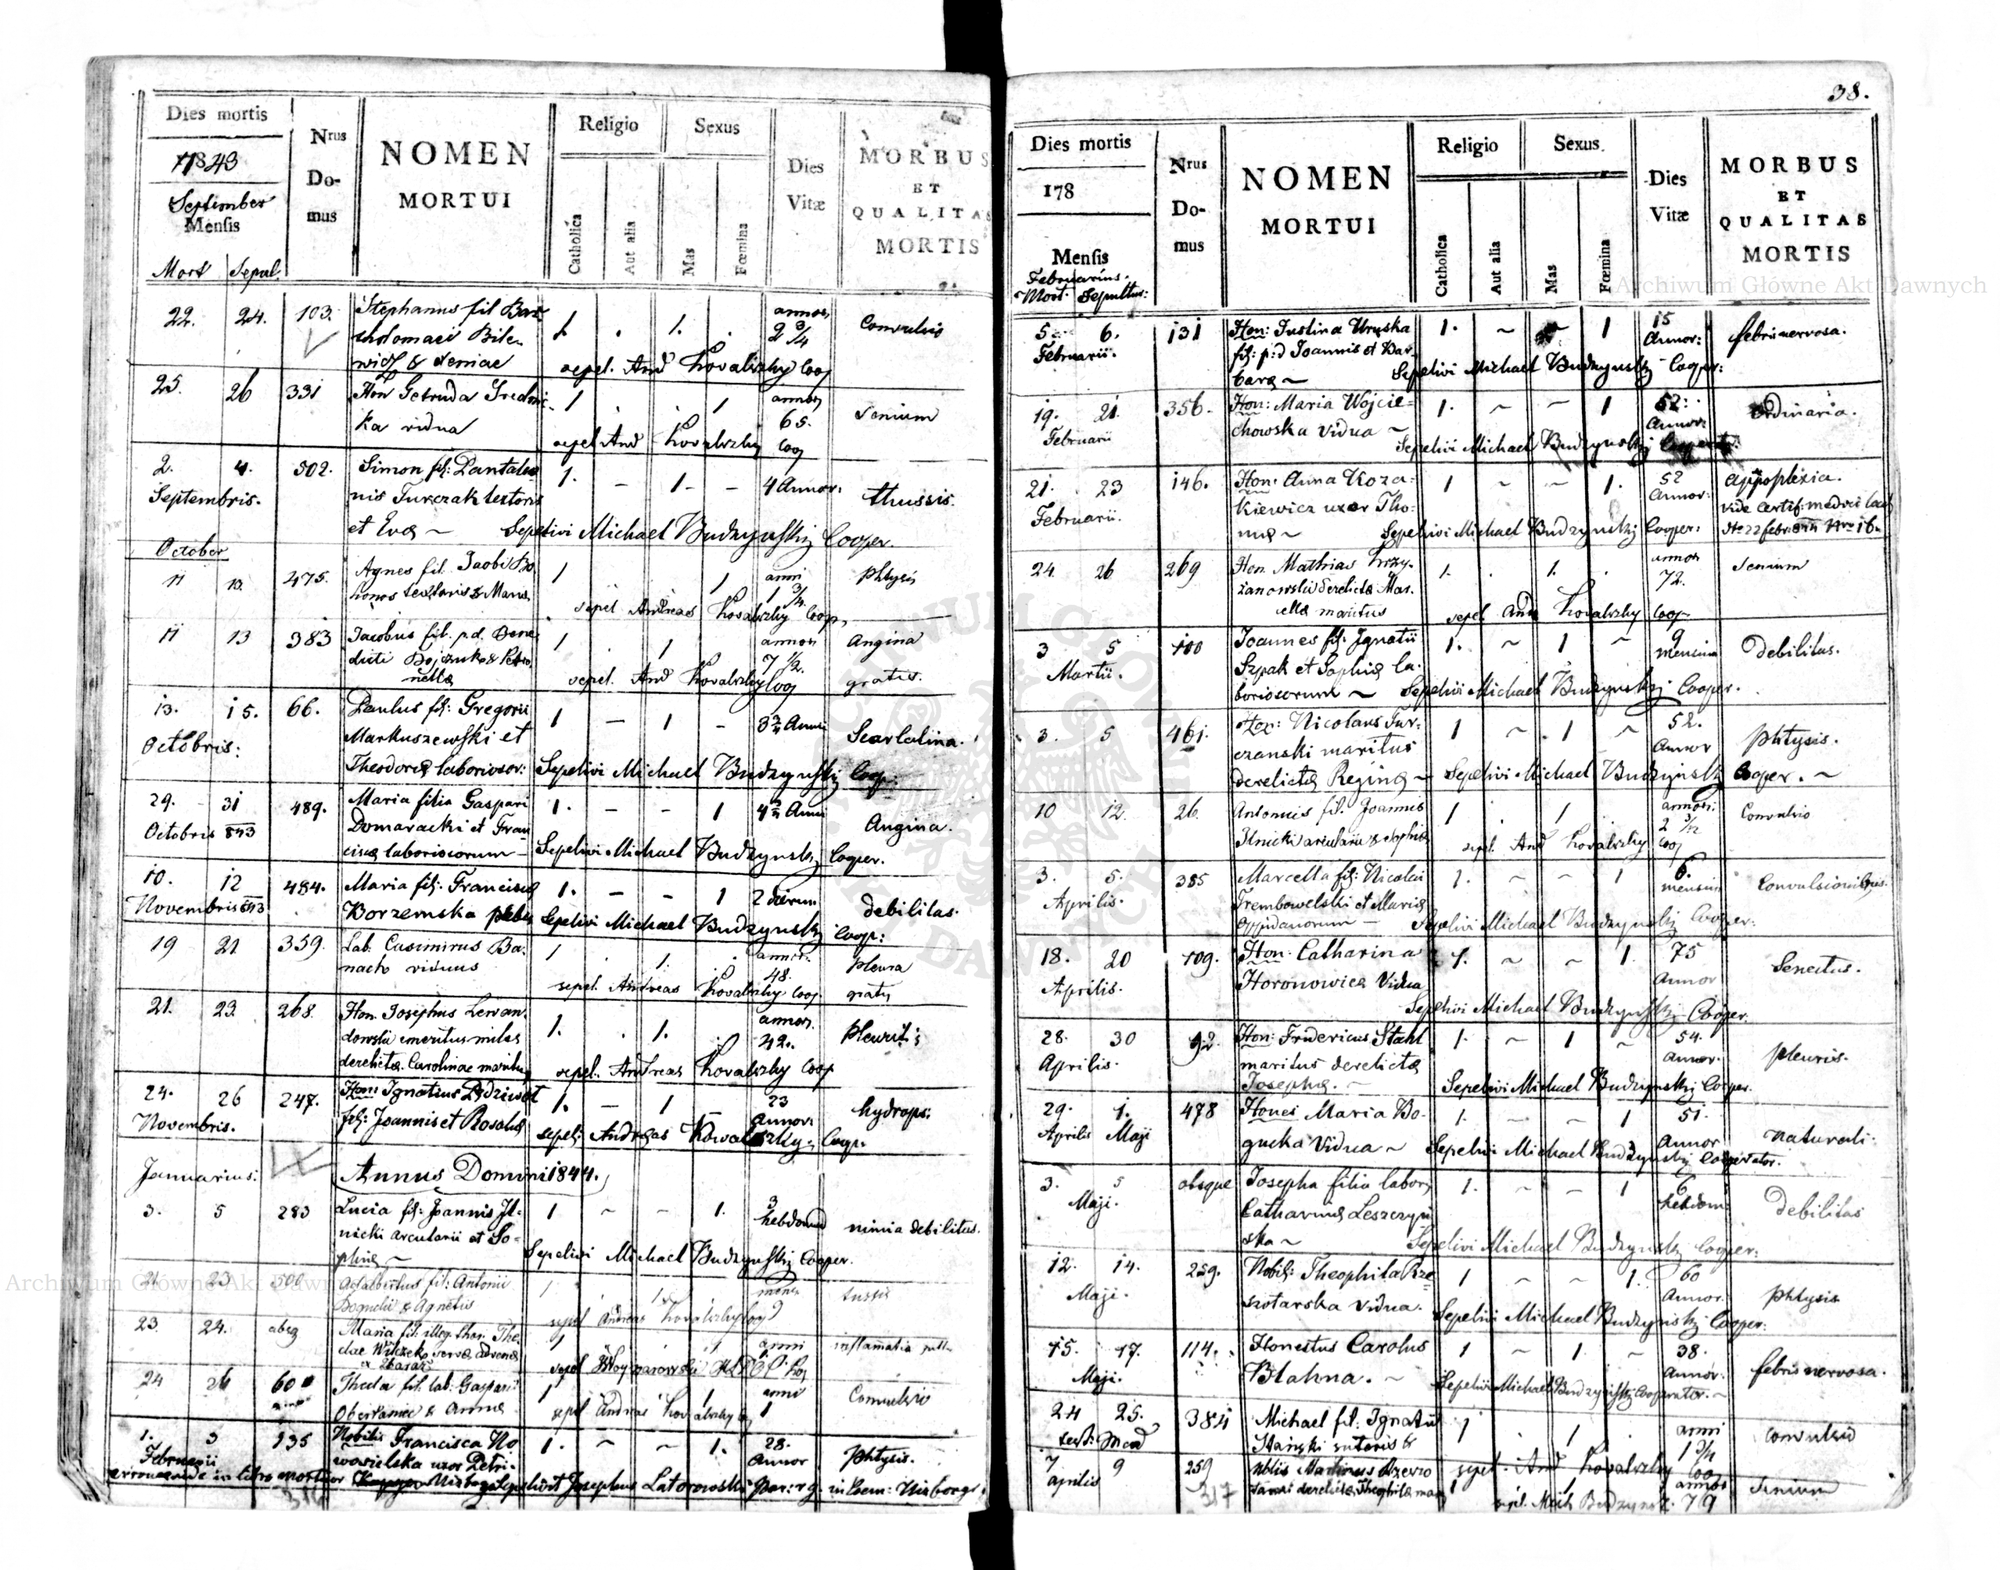 Dies mortis
1843
September
Mensis
Mort Sepul.
Nrus
Do-
mus
NOMEN
MORTUI
Religio
Catholica
Aut alia
Sexus
Mas
Fœmina
Dies
Vitæ
MORBUS
ET
QUALITAS
MORTIS
22. 24. 103. Stephanus fil Bar 1 . 1. . annor, Convulsio
tholomaei Bile- 2 3/4
wicz & Xeniae sepel. And Kovalszky Coop
25. 26 331 Hon Getruda 1 . . 1 annor 65. Senium
ka vidua sepel And Kovalszky Coop
2. 4. 502. Simon fil: Pantaleo 1. – 1 – – 4 Annor: thussis.
Septembris. nis Turczak textoris
et Evæ ~ Sepelivi Michael Budzynskij Cooper.
October
11 13. 475. Agnes fil. Jacobi Bo 1 1 anni 1 3/4. Phtysis
textoris & Maria sepel. Andreas Kovalszky Coop,
11 13 383 Jacobus fil. pd. Bene 1 . 1 annor 7 1/2. Angina
dicti Bojczuk & Petro
nella sepel. And Kovalszky Coop gratis.
13. 15. 66. Paulus fil: Gregorii 1 – 1 – Scarlatina.
Octobris: Markuszewski et
Theodoræ laborior: Sepelivi Michael Budzynskij Coop:
29. 31 489. Maria filia Gaspari 1. – – 1 Angina.
Octobris 843 Domaracki et Fran
ciscæ laboriosorum – Sepelivi Michael Budzynskij Cooper.
10. 12 484. Maria fil: Francisca 1. – – 1 2 dierum debilitas.
Novembris 843 Borzemska Sepelivi Michael Budzynskij Coop:
19 21. 359. Lab. Casimirus Ba- 1 . 1. . annor. 48. Pleura
nach viduus sepel. Andreas Kovalszky Coop. gratis
21. 23. 268. Hon. Josephus Lewan 1. . 1. . annor. 42. pleuritis
dowski emeritus miles
derelictæ Carolinae maritus sepel. Andreas Kovalszky Coop
24. 26 247. Hon: Ignatius 1. – 1 – 23 Annor: hydrops:
Novembris. fil: Joannis et Rosaliæ sepel: Andreas Kowalszky. Coop.
Januarius. Annus Domini 1844.
3. 5 283 Lucia fil: Joannis Il- 1 ~ ~ 1. 3 hebdomad nimia debilitas.
nicki arcularii et So-
phiæ ~ Sepelivi Michael Budzynskij Cooper.
21 23 500 Adalbertus fil: Antonii 1 tussis
& Agnetis sepel Andreas Kovalszky Coop
23. 24. absq Maria fil. illeg. The- 1 1 anni inflamatia
clae Wilczek servæ advenæ
24 26 60 Thecla fil. lab: Gaspari 1 1 anni 1 Convulsio
& Annæ sepel Andreas Kovalszky
1. 3 135 Nobilis Francisca No 1. ~ ~ 1. 28. Annor phtysis.
Februarii wosielska uxor Petri-
erroneæ in libro mortuor Josephus Latorowski
316
38.
Dies mortis
178
Mensis
Februarius.
Mort. Sepultus:
Nrus
Do-
mus
NOMEN
MORTUI
Religio
Catholica
Aut alia
Sexus.
Mas
Fœmina
Dies
Vitæ
MORBUS
ET
QUALITAS
MORTIS
5. 6. 131 Hon: Justina Uruska 1. ~ ~ 1 15 Annor: febri nervosa.
Februarii. fil: p:d Joannis et Bar-
baræ ~ Sepelivi Michael Budzynskij Cooper:
19. 21. 356. Hon: Maria Wojcie= 1. ~ ~ 1 52: Annor: Ordinaria.
Februarii chowska Vidua ~ Sepelivi Michael Budzynskij
21. 23 146. Hon: Anna Koza- 1 ~ ~ 1. 52 Annor: appoplexia.
Februarii. kiewicz uxor Tho- vide certif: medici
mæ ~ Sepelivi Michael Budzynskij Cooper:
24. 26 269 Hon Mathias Krzy- 1. . 1. . annor 72. Senium
zanowski derelictæ Mar-
cellæ maritus sepel. And Kovalszky Coop
3 5 100 Joannes fil: Ignatii 1. ~ 1 ~ 9 mensium Debilitas.
Martii. Szpak et Sophiæ la-
boriosorum ~ Sepelivi Michael Budzynskij Cooper.
3. 5 461. Hon: Nicolaus Tur- 1 ~ 1 ~ 52. Annor phtysis.
czanski maritus
derelictæ Reginæ ~ Sepelivi Michael Budzynskij Cooper. ~
10 12. 26. Antonius fil. Joannis 1 . 1 . annor: 2 3/12 Convulsio
Ilnicki arcularii & Sophiæ sepel. And Kovalszky Coop
3. 5. 385 Marcella fil: Nicolai 1. ~ ~ 1 6. mensium Convulsionibus.
Aprilis. Trembowelski et Mariæ
oppidanorum – Sepelivi Michael Budzynskij Cooper:
18. 20 109. Hon: Catharina 1. ~ ~ 1. 75 Annor Senectus.
Aprilis. Horonowicz Vidua Sepelivi Michael Budzynskij Cooper.
28. 30 92. Hon: Fridericus Stahl 1. ~ 1 ~ 54. Annor. pleuris.
Aprilis. maritus derelictæ
Josephæ. ~ Sepelivi Michael Budzynskij Cooper.
29. 1. 478 Hones Maria Bo- 1. ~ ~ 1 51. Annor naturali.
Aprilis Maji gucka Vidua ~ Sepelivi Michael Budzynskij Cooperator.
3. 5 absque Josepha filia labor: 1. ~ ~ 1 6 hebdom: Debilitas
Maji. Catharinæ Leszczyn
ska ~ Sepelivi Michael Budzynskij Cooper:
12. 14. 259. Nobil: Theophila Rze 1 ~ ~ 1. 60 Annor. phtysis
Maji. szotarska Vidua. Sepelivi Michael Budzynskij Cooper:
15. 17. 114. Honestus Carolus 1 ~ 1 ~ 38. Annor: febris nervosa.
Maji. Blahna. ~ Sepelivi Michael Budzynskij Cooperator. ~
24 25. 384 Michael fil. Ignatii 1 . 1 . anni 1 3/4 convulsio
Stański sutoris & sepel. And Kovalszky Coop
7 9 259 Nblis Martinus 1 1 annor 79 Senium
aprilis derelictæ Theophilæ mar sepel. Mich Budzynsk.
317
Archiwum Główne Akt Dawnych
Archiwum Główne Akt Dawnych
ARCHIWUM GŁÓWNE AKT DAWNYCH